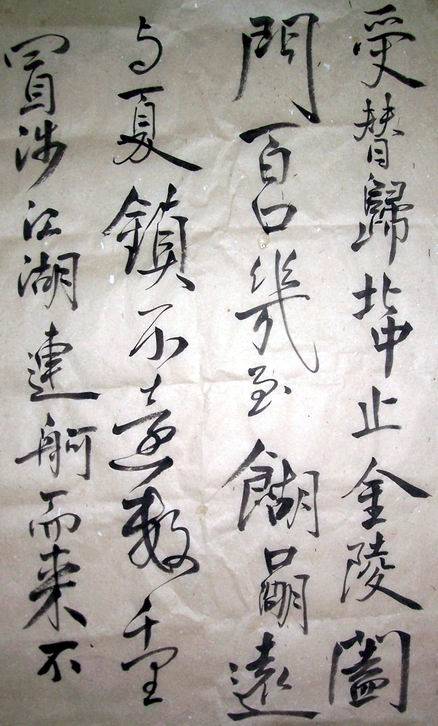 受替歸止金陵闔
門百口幾至餬遠
与夏不遠數千里
冒涉江湖連舸而来不